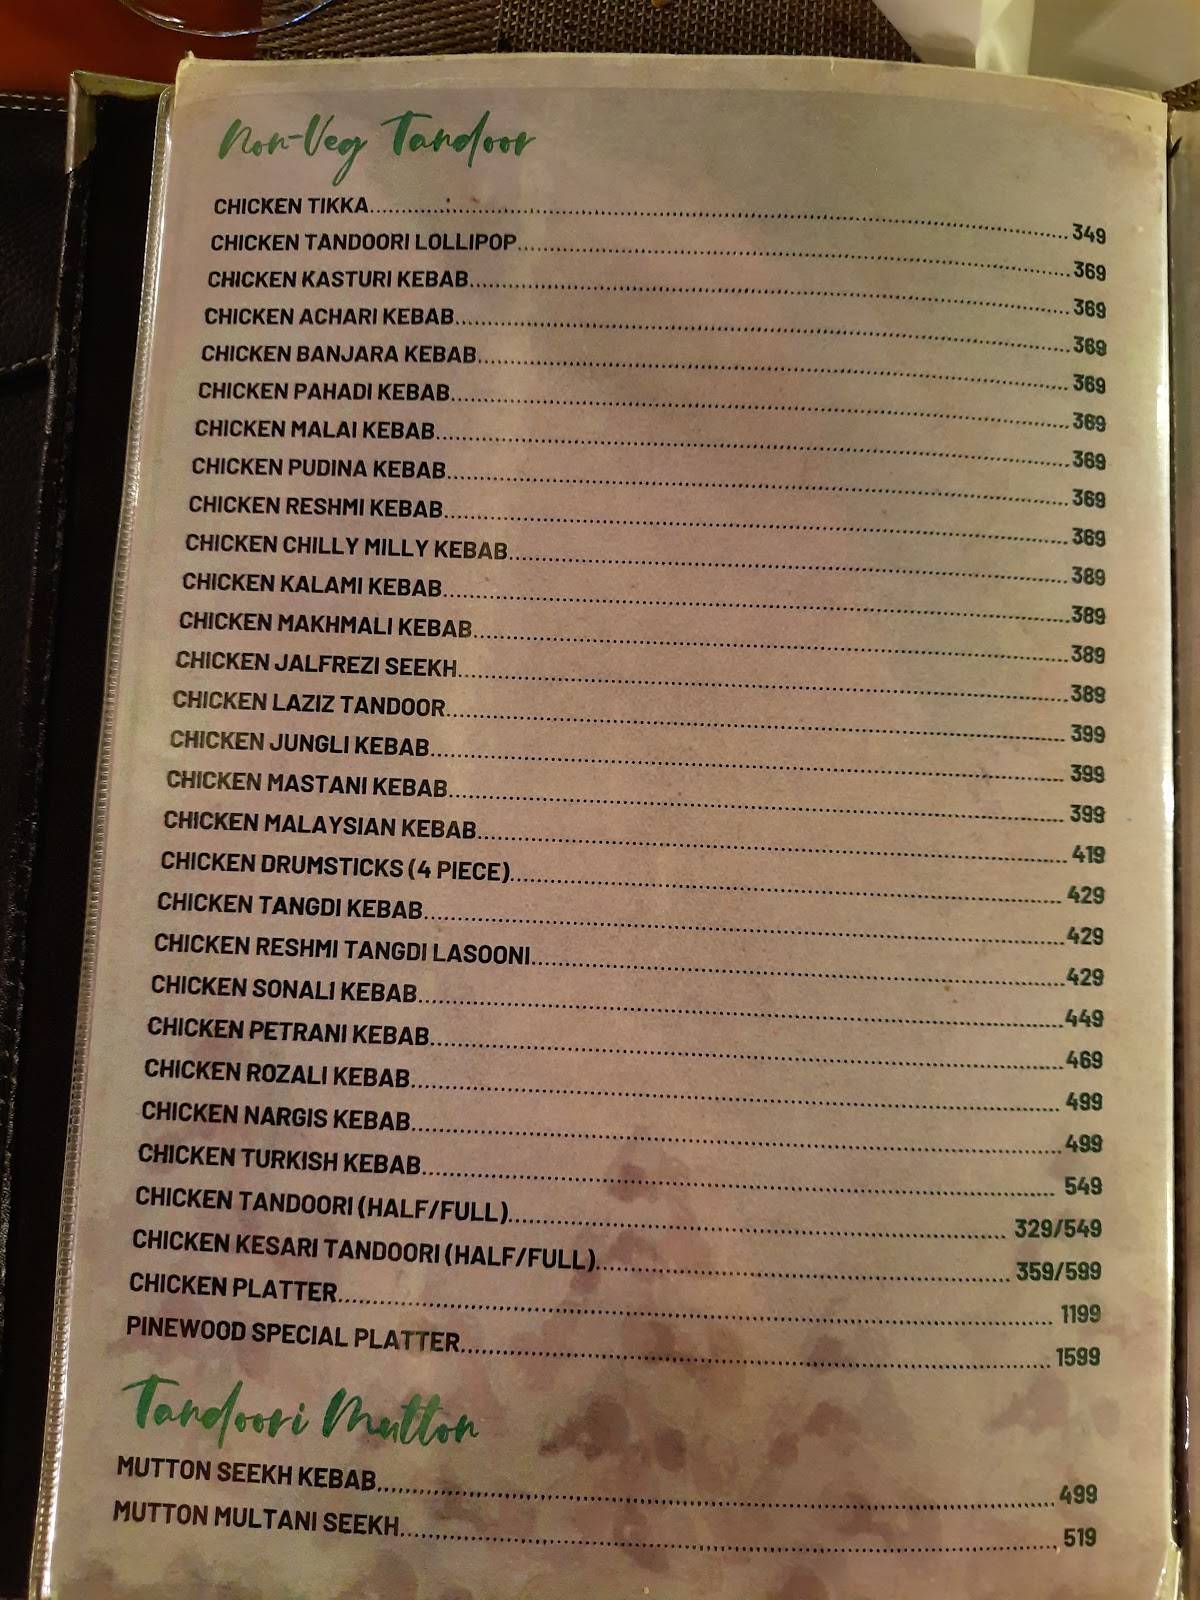 Non-Veg Tandoor
CHICKEN TIKKA 349
CHICKEN TANDOORI LOLLIPOP 369
CHICKEN KASTURI KEBAB 369
CHICKEN ACHARI KEBAB 369
CHICKEN BANJARA KEBAB 369
CHICKEN PAHADI KEBAB 369
CHICKEN MALAI KEBAB 369
CHICKEN PUDINA KEBAB 369
CHICKEN RESHMI KEBAB 369
CHICKEN CHILLY MILLY KEBAB 389
CHICKEN KALAMI KEBAB 389
CHICKEN MAKHMALI KEBAB 389
CHICKEN JALFREZI SEEKH 389
CHICKEN LAZIZ TANDOOR 399
CHICKEN JUNGLI KEBAB 399
CHICKEN MASTANI KEBAB 399
CHICKEN MALAYSIAN KEBAB 419
CHICKEN DRUMSTICKS (4 PIECE) 429
CHICKEN TANGDI KEBAB 429
CHICKEN RESHMI TANGDI LASOONI 429
CHICKEN SONALI KEBAB 449
CHICKEN PETRANI KEBAB 469
CHICKEN ROZALI KEBAB 499
CHICKEN NARGIS KEBAB 499
CHICKEN TURKISH KEBAB 549
CHICKEN TANDOORI (HALF/FULL) 329/549
CHICKEN KESARI TANDOORI (HALF/FULL) 359/599
CHICKEN PLATTER 1199
PINEWOOD SPECIAL PLATTER 1599
Tandoori Mutton
MUTTON SEEKH KEBAB 499
MUTTON MULTANI SEEKH 519